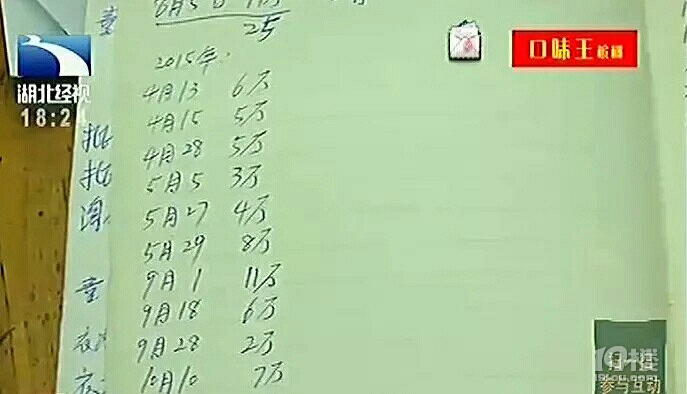 湖北经视
18:21
口味王槟榔
25
2015年.
4月13 6万
4月15 5万
4月28 5万
5月5 3万
5月27 4万
5月29 8万
9月1 11万
9月18 6万
9月28 2万
10月10 7万
扫一扫
参与互动
19楼